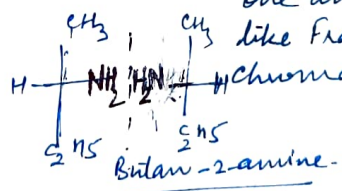 one
CH3 CH3 like Fra
H NH2 H2N H Chroma
C2H5 C2H5
Butan-2-amine.